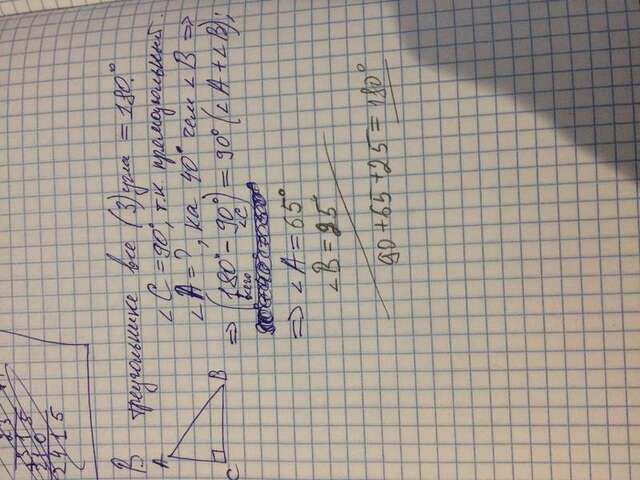 В треугольнике все (3) угла = 180°
∠C = 90°, т.к прямоугольный.
∠A = ?, на 40° чем ∠B ⇒
⇒ (180° - 90°) = 90° (∠A + ∠B);
всего ∠C
⇒ ∠A = 65°
∠B = 25
90 + 65 + 25 = 180°
A
B
C
2415